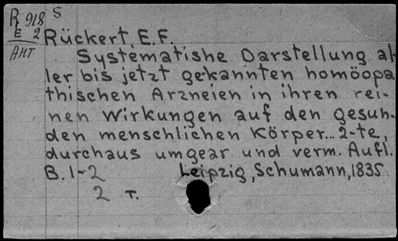 R 918 S
E 2
Ант
Rückert, E.F.
Systematishe Darstellung al-
ler bis jetzt gekannten homöopa-
thischen Arzneien in ihren rei-
nen Wirkungen auf den gesun-
den menschlichen Körper... 2-te,
durchaus umgear und verm. Aufl.
B. 1-2 Leipzig, Schumann, 1835
2 т.